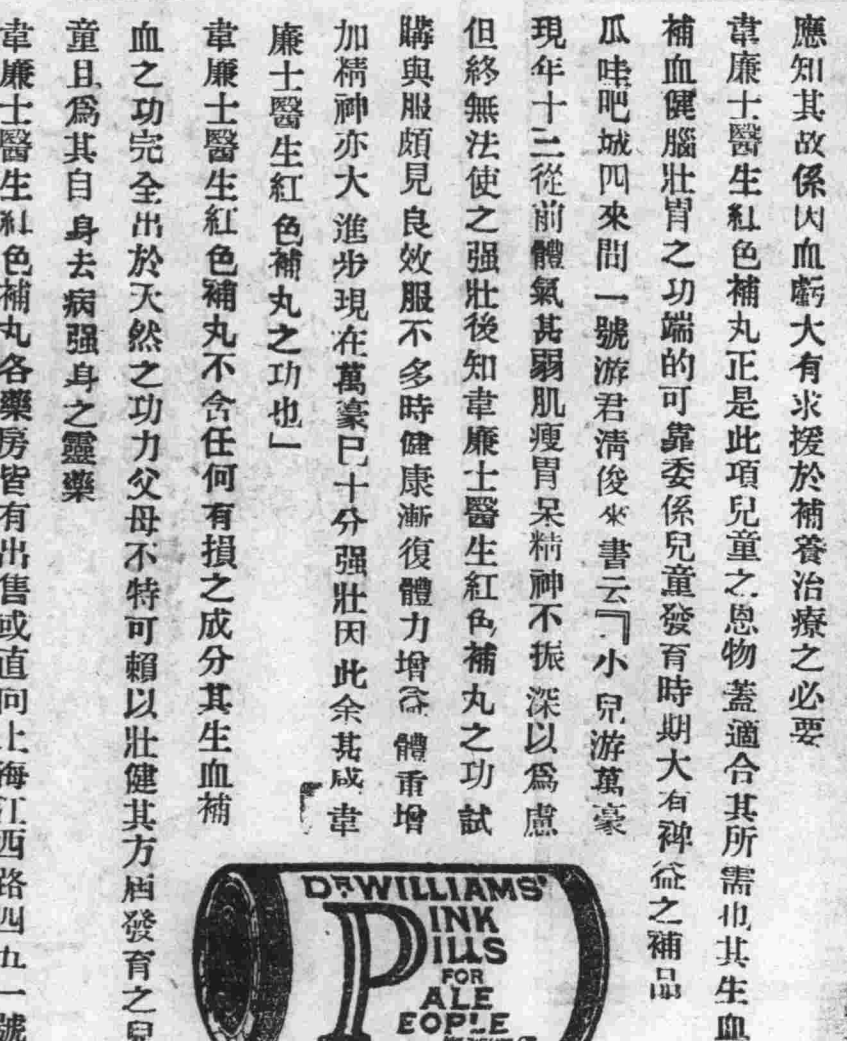 應知其故係因血虧大有求援於補養治療之必要
韋廉士醫生紅色補丸正是此項兒童之恩物蓋適合其所需也其生血
補血健腦壯胃之功端的可靠委係兒童發育時期大有裨益之補品
瓜哇吧城四來問一號游君清俊來書云『小兒游萬豪
現年十三從前體氣甚弱肌瘦胃呆精神不振深以爲慮
但終無法使之强壯後知韋廉士醫生紅色補丸之功試
購與服頗見良效服不多時健康漸復體力增益體重增
加精神亦大進步現在萬豪巳十分强壯因此余甚感韋
廉士醫生紅色補丸之功也」
韋廉士醫生紅色補丸不含任何有損之成分其生血補
血之功完全出於天然之功力父母不特可賴以壯健其方届發育之兒
童且爲其自身去病强身之靈藥
韋廉士醫生紅色補丸各藥房皆有出售或直向上海江西路四五一號
DR. WILLIAMS'
PINK
PILLS
FOR
PALE
PEOPLE